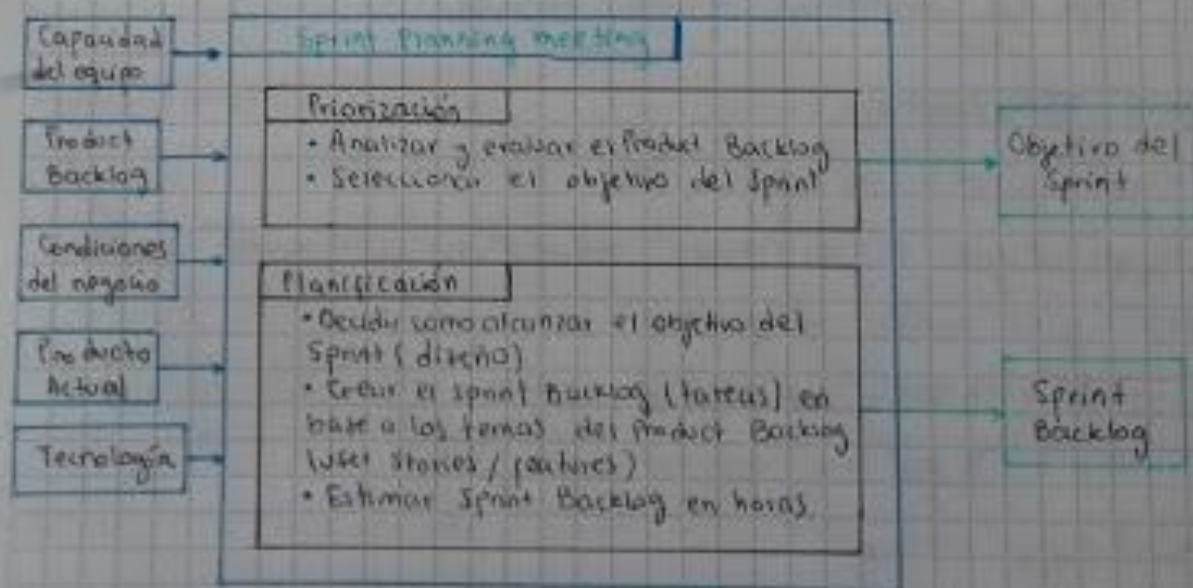 Capacidad
del equipo
Product
Backlog
Condiciones
del negocio
Producto
Actual
Tecnología
Sprint Planning meeting
Priorización
• Analizar y evaluar el Product Backlog
• Seleccionar el objetivo del Sprint
Planificación
• Decidir como alcanzar el objetivo del
Sprint (diseño)
• Crear el Sprint Backlog (tareas) en
base a los temas del Product Backlog
(user stories / features)
• Estimar Sprint Backlog en horas
Objetivo del
Sprint
Sprint
Backlog